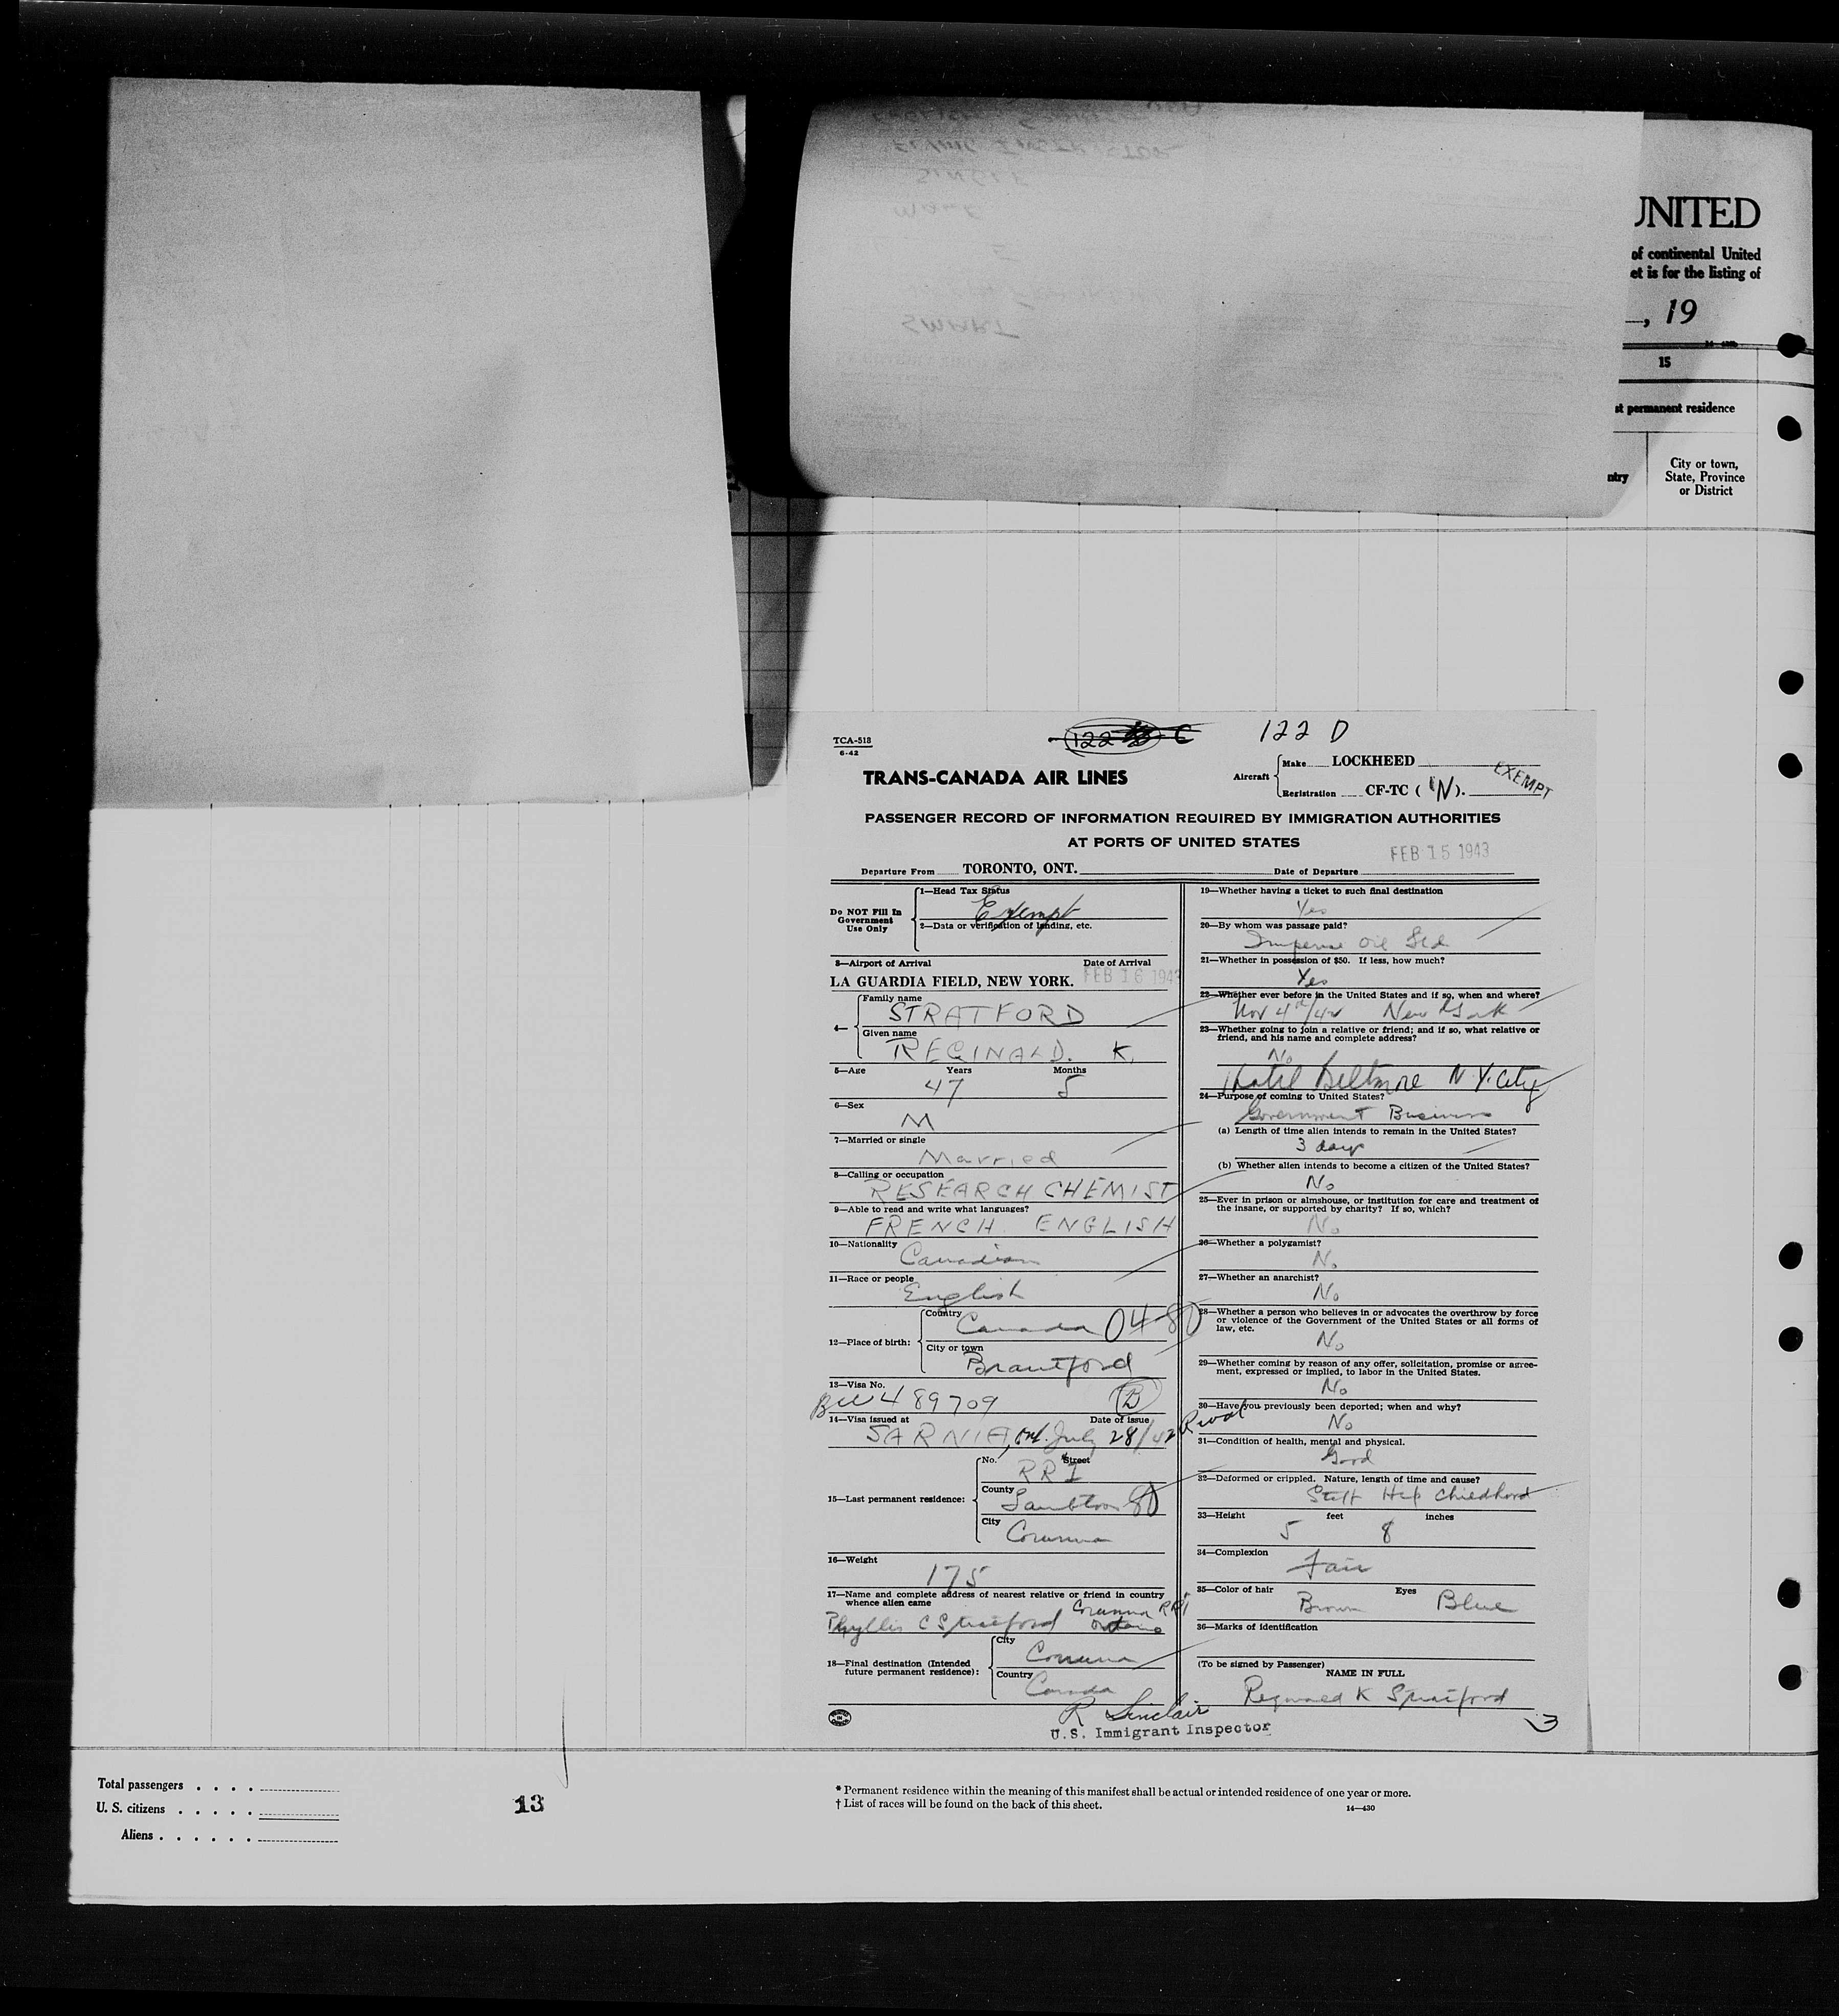 UNITED
of continental United
et is for the listing of
, 19
15
st permanent residence
ntry
City or town,
State, Province
or District
SMART
TCA-518
6-42
122 C
122 D
TRANS-CANADA AIR LINES
Aircraft
Make LOCKHEED
Registration CF-TC ( N ).
EXEMPT
PASSENGER RECORD OF INFORMATION REQUIRED BY IMMIGRATION AUTHORITIES
AT PORTS OF UNITED STATES
FEB 15 1943
Departure From TORONTO, ONT. Date of Departure
Do NOT Fill In
Government
Use Only
1—Head Tax Status
Exempt
2—Data or verification of landing, etc.
3—Airport of Arrival Date of Arrival
LA GUARDIA FIELD, NEW YORK. FEB 16 1943
4— Family name
STRATFORD
Given name
REGINALD. K.
5—Age Years Months
47 5
6—Sex
M
7—Married or single
Married
8—Calling or occupation
RESEARCH CHEMIST
9—Able to read and write what languages?
FRENCH ENGLISH
10—Nationality
Canadian
11—Race or people
English
12—Place of birth:
Country
Canada 04-80
City or town
Brantford
13—Visa No.
489709 B
14—Visa issued at Date of issue
SARNIA, Ont. July 28/42
15—Last permanent residence:
No. Street
RR1
County
Lambton 80
City
Corunna
16—Weight
175
17—Name and complete address of nearest relative or friend in country
whence alien came
Corunna RR1
Phyllis C Stratford Ontario
18—Final destination (Intended
future permanent residence):
City
Corunna
Country
Canada
R Sinclair
U.S. Immigrant Inspector
19—Whether having a ticket to such final destination
Yes
20—By whom was passage paid?
Imperial Oil Ltd.
21—Whether in possession of $50. If less, how much?
Yes
22—Whether ever before in the United States and if so, when and where?
Nov 4th/42 New York
23—Whether going to join a relative or friend; and if so, what relative or
friend, and his name and complete address?
No
Hotel Biltmore N.Y. City
24—Purpose of coming to United States?
Government Business
(a) Length of time alien intends to remain in the United States?
3 days
(b) Whether alien intends to become a citizen of the United States?
No
25—Ever in prison or almshouse, or institution for care and treatment of
the insane, or supported by charity? If so, which?
No
26—Whether a polygamist?
No
27—Whether an anarchist?
No
28—Whether a person who believes in or advocates the overthrow by force
or violence of the Government of the United States or all forms of
law, etc.
No
29—Whether coming by reason of any offer, solicitation, promise or agree-
ment, expressed or implied, to labor in the United States.
No
30—Have you previously been deported; when and why?
No
31—Condition of health, mental and physical.
Good
32—Deformed or crippled. Nature, length of time and cause?
Stiff Hip Childhood
33—Height feet inches
5 8
34—Complexion
Fair
35—Color of hair Eyes
Brown Blue
36—Marks of identification
(To be signed by Passenger)
NAME IN FULL
Reginald K Stratford
3
Total passengers
U. S. citizens
Aliens
13
* Permanent residence within the meaning of this manifest shall be actual or intended residence of one year or more.
† List of races will be found on the back of this sheet.
14—430